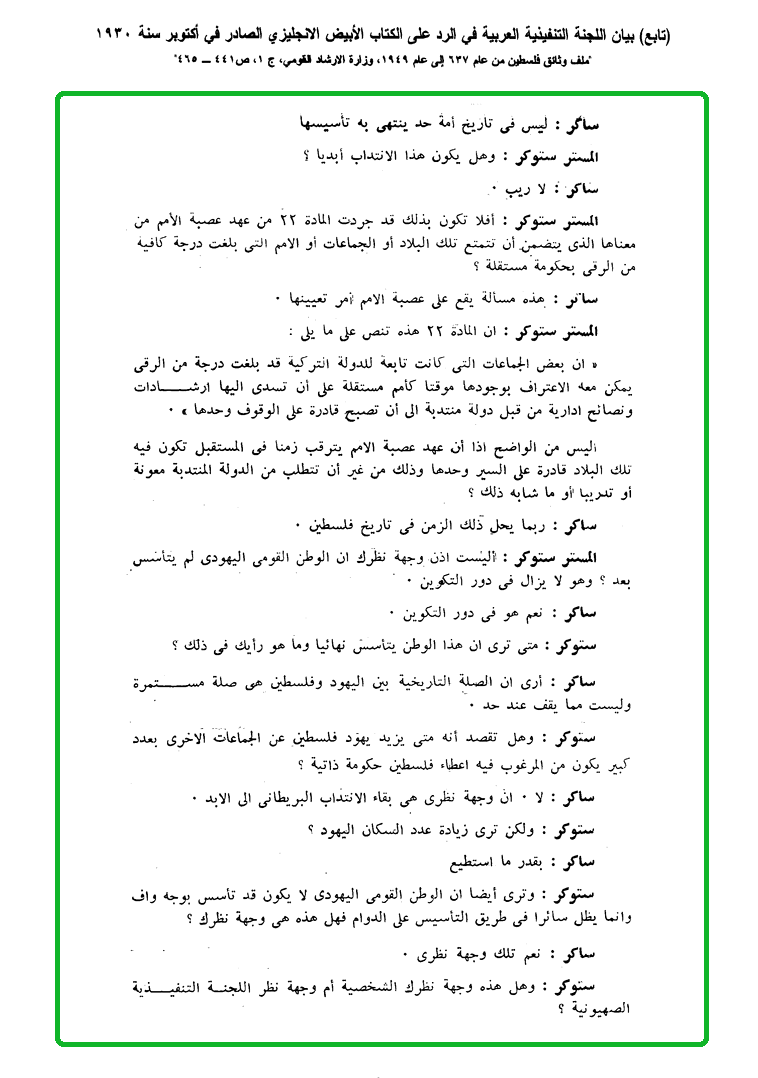 (تابع) بيان اللجنة التنفيذية العربية في الرد على الكتاب الأبيض الانجليزي الصادر في أكتوبر سنة ١٩٣٠
"ملف وثائق فلسطين من عام ٦٣٧ إلى عام ١٩٤٩، وزارة الارشاد القومي، ج ١، ص ٤٤١ ــ ٤٦٥"
ساكر : ليس فى تاريخ أمة حد ينتهى به تأسيسها
المستر ستوكر : وهل يكون هذا الانتداب أبديا ؟
ساكر : لا ريب ٠
المستر ستوكر : أفلا تكون بذلك قد جردت المادة ٢٢ من عهد عصبة الأمم من
معناها الذى يتضمن أن تتمتع تلك البلاد أو الجماعات أو الامم التى بلغت درجة كافية
من الرقى بحكومة مستقلة ؟
ساكر : هذه مسألة يقع على عصبة الامم أمر تعيينها ٠
المستر ستوكر : ان المادة ٢٢ هذه تنص على ما يلى :
« ان بعض الجماعات التى كانت تابعة للدولة التركية قد بلغت درجة من الرقى
يمكن معه الاعتراف بوجودها موقتا كأمم مستقلة على أن تسدى اليها ارشــــادات
ونصائح ادارية من قبل دولة منتدبة الى أن تصبح قادرة على الوقوف وحدها » ٠
أليس من الواضح اذا أن عهد عصبة الامم يترقب زمنا فى المستقبل تكون فيه
تلك البلاد قادرة على السير وحدها وذلك من غير أن تتطلب من الدولة المنتدبة معونة
أو تدريبا أو ما شابه ذلك ؟
ساكر : ربما يحل ذلك الزمن فى تاريخ فلسطين ٠
المستر ستوكر : أليست اذن وجهة نظرك ان الوطن القومى اليهودى لم يتأسس
بعد ؟ وهو لا يزال فى دور التكوين ٠
ساكر : نعم هو فى دور التكوين ٠
ستوكر : متى ترى ان هذا الوطن يتأسس نهائيا وما هو رأيك فى ذلك ؟
ساكر : أرى ان الصلة التاريخية بين اليهود وفلسطين هى صلة مســــتمرة
وليست مما يقف عند حد ٠
ستوكر : وهل تقصد أنه متى يزيد يهود فلسطين عن الجماعات الاخرى بعدد
كبير يكون من المرغوب فيه اعطاء فلسطين حكومة ذاتية ؟
ساكر : لا ٠ ان وجهة نظرى هى بقاء الانتداب البريطانى الى الابد ٠
ستوكر : ولكن ترى زيادة عدد السكان اليهود ؟
ساكر : بقدر ما استطيع
ستوكر : وترى أيضا ان الوطن القومى اليهودى لا يكون قد تأسس بوجه واف
وانما يظل سائرا فى طريق التأسيس على الدوام فهل هذه هى وجهة نظرك ؟
ساكر : نعم تلك وجهة نظرى ٠
ستوكر : وهل هذه وجهة نظرك الشخصية أم وجهة نظر اللجنــة التنفيــــذية
الصهيونية ؟